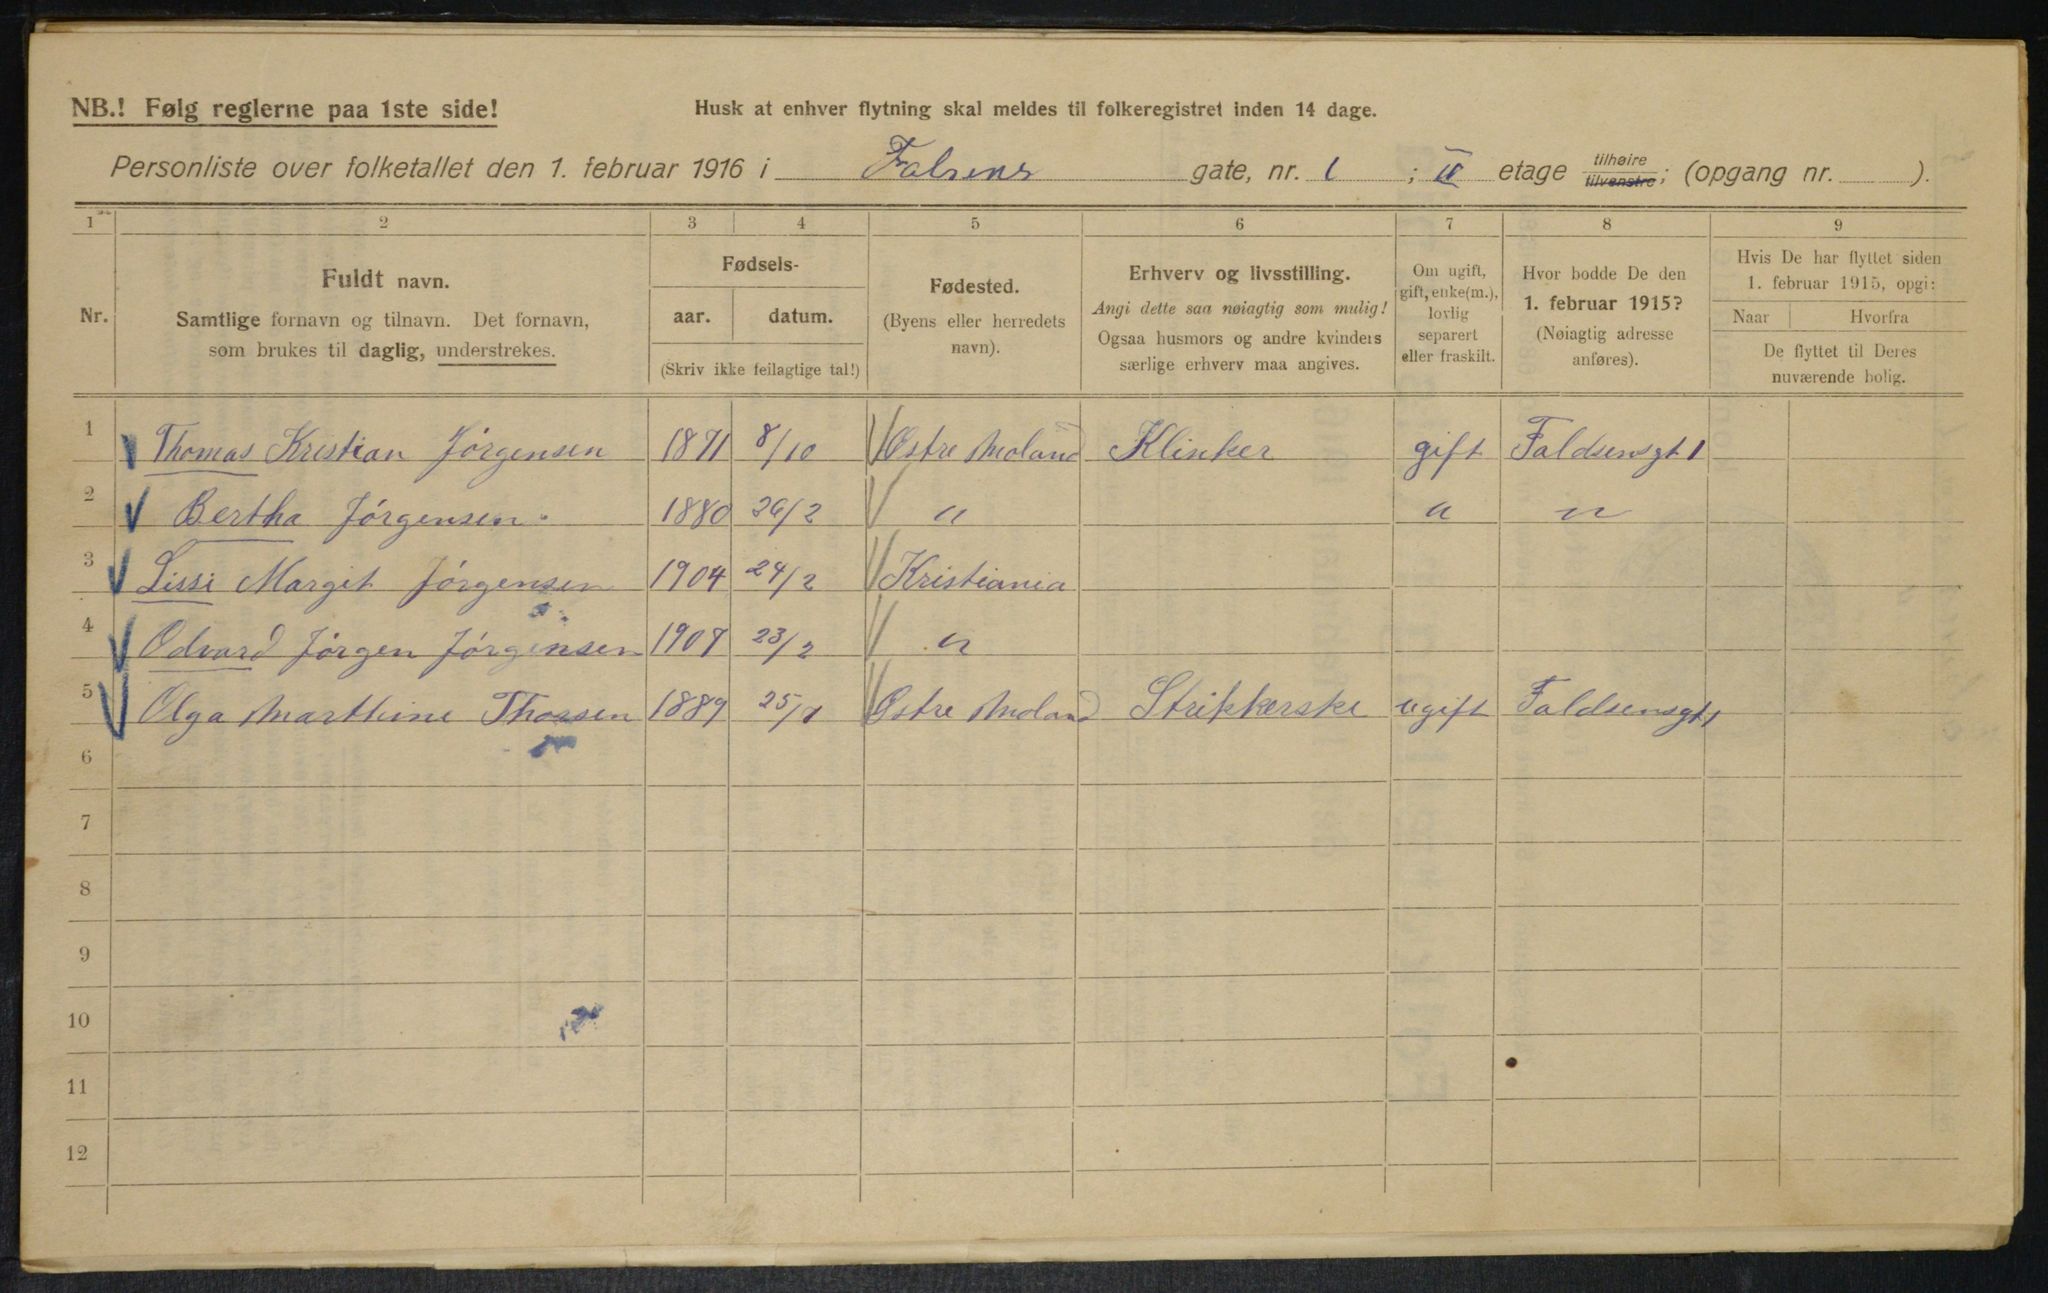 NB.! Følg reglerne paa 1ste side!
Husk at enhver flytning skal meldes til folkeregistret inden 14 dage.
Personliste over folketallet den 1. februar 1916 i Falsens gate, nr. 1 ; II etage tilhøire tilvenstre; (opgang nr. ).
1 2 3 4 5 6 7 8 9
Nr.
Fuldt navn.
Samtlige fornavn og tilnavn. Det fornavn,
som brukes til daglig, understrekes.
Fødsels-
aar. datum.
(Skriv ikke feilagtige tal!)
Fødested.
(Byens eller herredets
navn).
Erhverv og livsstilling.
Angi dette saa nøiagtig som mulig!
Ogsaa husmors og andre kvinders
særlige erhverv maa angives.
Om ugift,
gift, enke(m.),
lovlig
separert
eller fraskilt.
Hvor bodde De den
1. februar 1915?
(Nøiagtig adresse
anføres).
Hvis De har flyttet siden
1. februar 1915, opgi:
Naar Hvorfra
De flyttet til Deres
nuværende bolig.
1 Thomas Kristian Jørgensen 1871 8/10 Østre Moland Klinker gift Faldsensgt 1
2 Bertha Jørgensen. 1880 26/2 " " "
3 Lissi Margit Jørgensen 1904 24/2 Kristiania
4 Odvard Jørgen Jørgensen 1907 23/2 "
5 Olga Marthine Thorsen 1889 25/7 Østre Moland Strikkerske ugift Faldsensgt 1
6
7
8
9
10
11
12